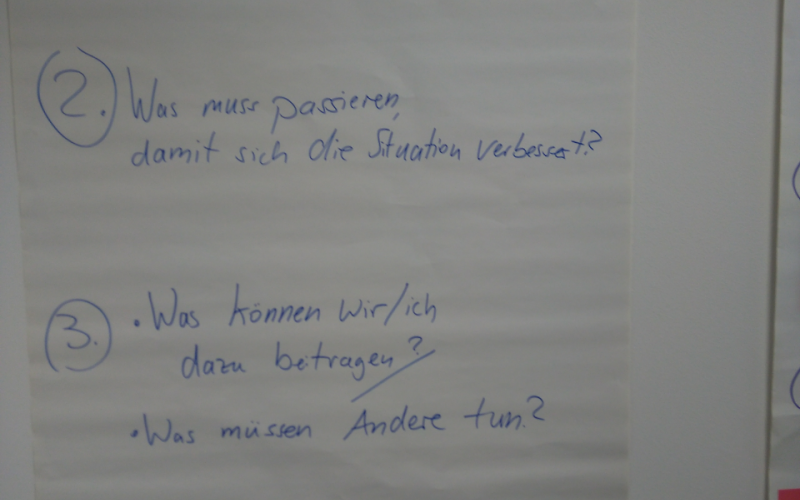 2. Was muss passieren,
damit sich die Situation verbessert?
3. • Was können wir/ich
dazu beitragen?
• Was müssen Andere tun?